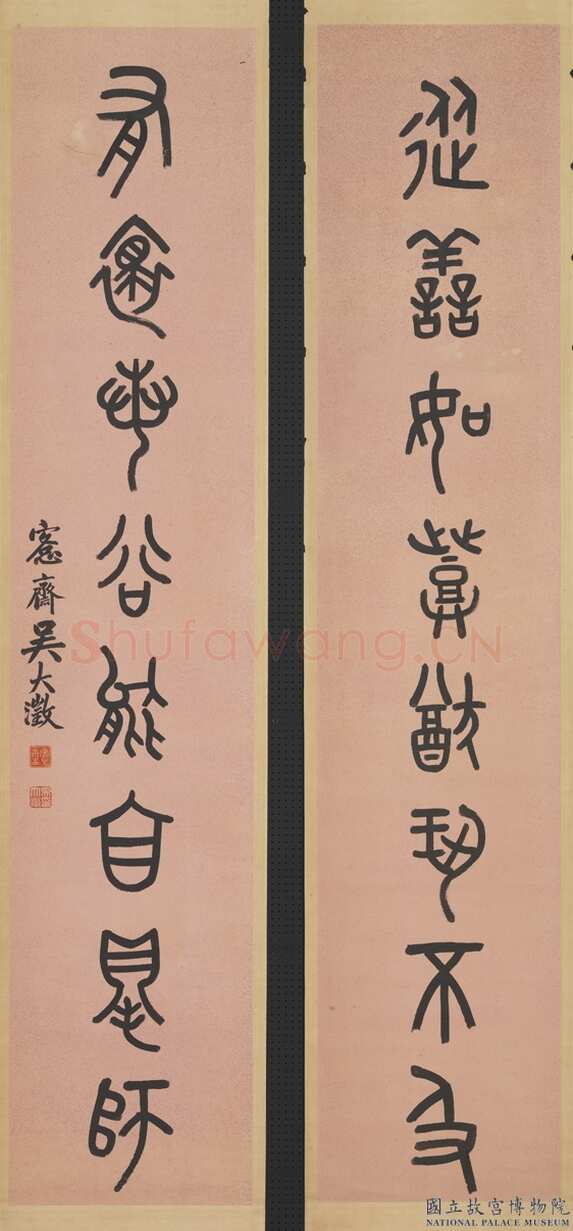 從善如猶恐不及
有若谷能自得師
愙齋吳大澂
Shufawang.CN
國立故宮博物院
NATIONAL PALACE MUSEUM